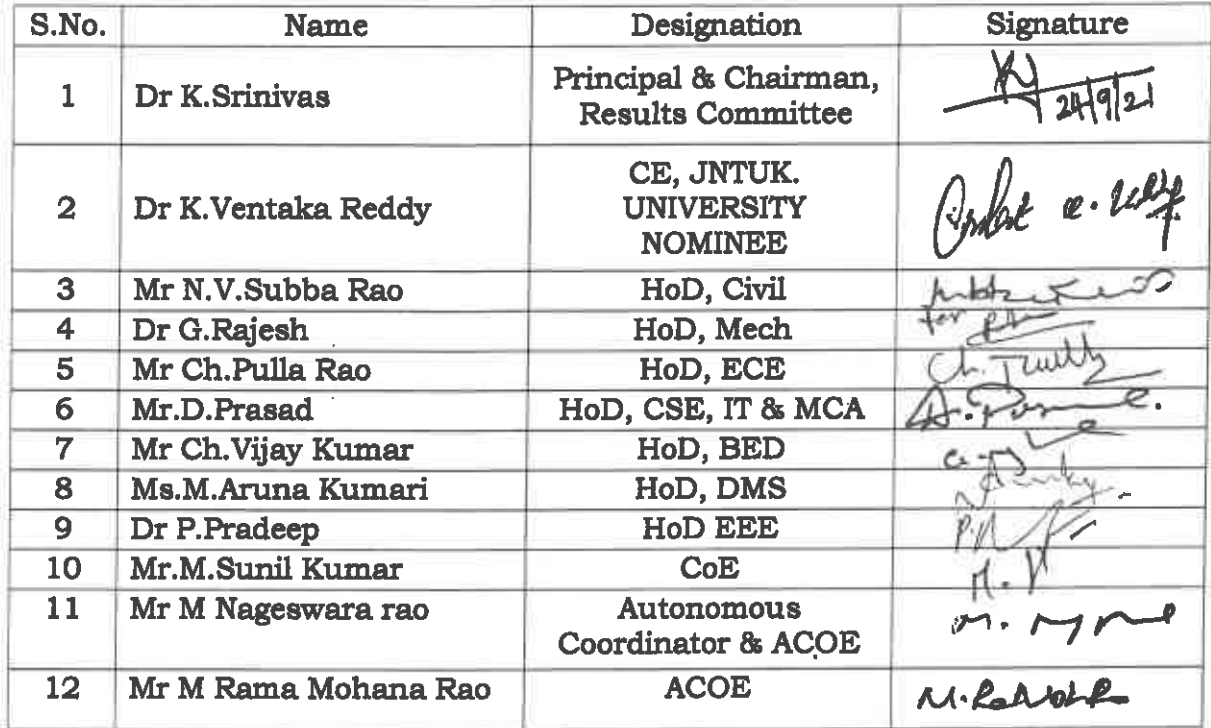 S.No. Name Designation Signature
1 Dr K.Srinivas Principal & Chairman,
Results Committee
24/9/21
2 Dr K.Ventaka Reddy CE, JNTUK.
UNIVERSITY
NOMINEE
3 Mr N.V.Subba Rao HoD, Civil
4 Dr G.Rajesh HoD, Mech for
5 Mr Ch.Pulla Rao HoD, ECE Ch.
6 Mr.D.Prasad HoD, CSE, IT & MCA
7 Mr Ch.Vijay Kumar HoD, BED
8 Ms.M.Aruna Kumari HoD, DMS
9 Dr P.Pradeep HoD EEE
10 Mr.M.Sunil Kumar CoE
11 Mr M Nageswara rao Autonomous
Coordinator & ACOE
12 Mr M Rama Mohana Rao ACOE